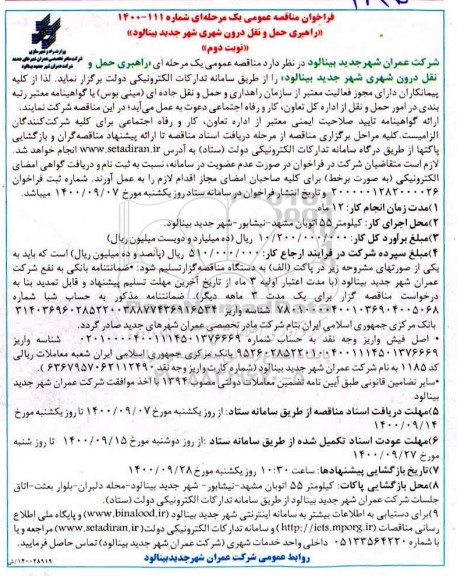 فراخوان مناقصه عمومی یک مرحله‌ای شماره ۱۱۱-۱۴۰۰
«راهبری حمل و نقل درون شهری شهر جدید بینالود»
«نوبت دوم»
وزارت راه و شهرسازی
شرکت عمران شهر جدید بینالود
شرکت عمران شهر جدید بینالود در نظر دارد مناقصه عمومی یک مرحله ای «راهبری حمل و
نقل درون شهری شهر جدید بینالود» را از طریق سامانه تدارکات الکترونیکی دولت برگزار نماید. لذا از کلیه
پیمانکاران دارای مجوز فعالیت معتبر از سازمان راهداری و حمل و نقل جاده ای (مینی بوس) یا گواهینامه معتبر رتبه
بندی در امور حمل و نقل از اداره کل تعاون، کار و رفاه اجتماعی دعوت به عمل می‌آید؛ در این مناقصه شرکت نمایند.
ارائه گواهینامه تایید صلاحیت ایمنی معتبر از اداره تعاون، کار و رفاه اجتماعی برای کلیه شرکت‌کنندگان
الزامیست. کلیه مراحل برگزاری مناقصه از مرحله دریافت اسناد مناقصه تا ارائه پیشنهاد مناقصه‌گران و بازگشایی
پاکتها از طریق درگاه سامانه تدارکات الکترونیکی دولت (ستاد) به آدرس www.setadiran.ir انجام خواهد شد.
لازم است متقاضیان شرکت در فراخوان در صورت عدم عضویت در سامانه، نسبت به ثبت نام و دریافت گواهی امضای
الکترونیکی (به صورت برخط) برای کلیه صاحبان امضای مجاز اقدام لازم را به عمل آورند. شماره ثبت فراخوان
۲۰۰۰۰۰۱۲۸۲۰۰۰۰۲۶ و تاریخ انتشار فراخوان در سامانه ستاد روز یکشنبه مورخ ۱۴۰۰/۰۹/۰۷ میباشد.
۱)مدت زمان انجام کار: ۱۲ ماه.
۲)محل اجرای کار: کیلومتر ۵۵ اتوبان مشهد-نیشابور-شهر جدید بینالود.
۳)مبلغ برآورد کل کار: ۱۰/۲۰۰/۰۰۰/۰۰۰ ریال (ده میلیارد و دویست میلیون ریال)
۴)مبلغ سپرده شرکت در فرآیند ارجاع کار: ۵۱۰/۰۰۰/۰۰۰ ریال (پانصد و ده میلیون ریال) است که باید به
یکی از صورتهای مشروحه زیر در پاکت (الف) به دستگاه مناقصه گزار تسلیم شود: •ضمانتنامه بانکی به نفع شرکت
عمران شهر جدید بینالود (با مدت اعتبار اولیه ۳ ماه از تاریخ آخرین مهلت تسلیم پیشنهاد و قابل تمدید بنا به
درخواست مناقصه گزار برای یک مدت ۳ ماهه دیگر). ضمانتنامه مذکور به حساب شبا شماره
شناسه واریز
بانک مرکزی جمهوری اسلامی ایران بنام شرکت مادر تخصصی عمران شهرهای جدید صادر گردد.
• اصل فیش واریز وجه نقد به حساب شماره شناسه واریز
بانک مرکزی جمهوری اسلامی ایران شعبه معاملات ریالی
کد ۱۱۸۵ به نام شرکت عمران شهر جدید بینالود (شماره کارت واریز وجه نقد ۶۳۶۷۹۵۷۰۶۲۱۱۲۴۹۰)
•سایر تضامین قانونی طبق آیین نامه تضمین معاملات دولتی مصوب ۱۳۹۴ با اخذ موافقت شرکت عمران شهر جدید
بینالود
۵)مهلت دریافت اسناد مناقصه از طریق سامانه ستاد: از روز یکشنبه مورخ ۱۴۰۰/۰۹/۰۷ تا روز یکشنبه مورخ
۱۴۰۰/۰۹/۱۴
۶)مهلت عودت اسناد تکمیل شده از طریق سامانه ستاد :از روز دوشنبه مورخ ۱۴۰۰/۰۹/۱۵ تا روز شنبه
مورخ ۱۴۰۰/۰۹/۲۷
۷)تاریخ بازگشایی پیشنهادها: ساعت ۱۰:۳۰ روز یکشنبه مورخ ۱۴۰۰/۰۹/۲۸
۸)محل بازگشایی پاکات: کیلومتر ۵۵ اتوبان مشهد-نیشابور- شهر جدید بینالود-محله دلبران-بلوار بعثت-اتاق
جلسات شرکت عمران شهر جدید بینالود از طریق سامانه تدارکات الکترونیکی دولت (ستاد).
۹)برای دستیابی به اطلاعات بیشتر به سامانه اینترنتی شهر جدید بینالود (www.binalood.ir) و پایگاه ملی اطلاع
رسانی مناقصات (http://iets.mporg.ir) و سامانه تدارکات الکترونیکی دولت (www.setadiran.ir) مراجعه و یا
با شماره ۰۵۱۳۳۵۶۴۲۲۰ داخلی واحد خدمات شهری (شرکت عمران شهر جدید بینالود) تماس حاصل فرمایید.
روابط عمومی شرکت عمران شهر جدید بینالود